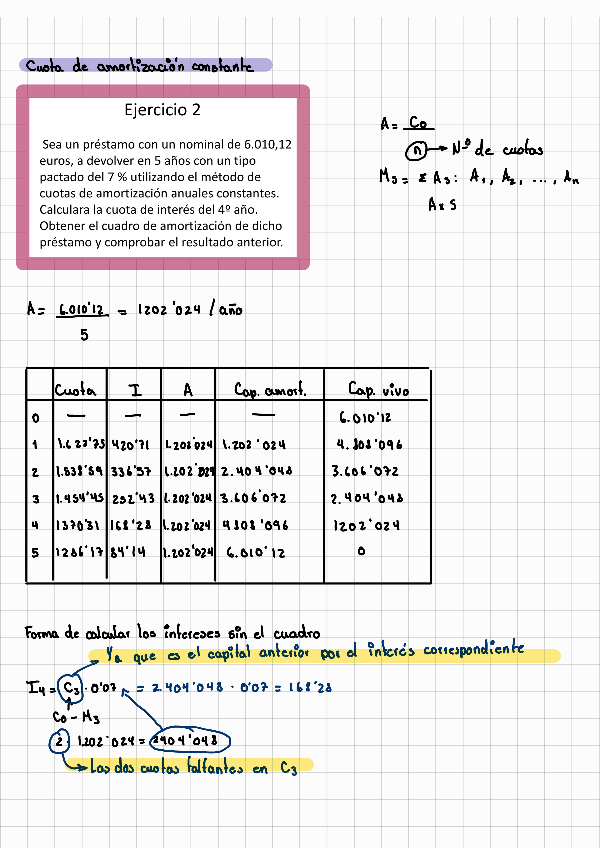 Cuota de amortización constante
Ejercicio 2
Sea un préstamo con un nominal de 6.010,12
euros, a devolver en 5 años con un tipo
pactado del 7 % utilizando el método de
cuotas de amortización anuales constantes.
Calculara la cuota de interés del 4º año.
Obtener el cuadro de amortización de dicho
préstamo y comprobar el resultado anterior.
A = Co
n → Nº de cuotas
M₃ = Σ A₃: A₁, A₂, ..., An
A x S
A = 6.010'12 = 1202'024 / año
5
Cuota I A Cap. amort. Cap. vivo
0 — — — — 6.010'12
1 1.622'73 420'71 1.202'024 1.202'024 4.808'096
2 1.538'59 336'57 1.202'024 2.404'048 3.606'072
3 1.454'45 252'43 1.202'024 3.606'072 2.404'048
4 1370'31 168'28 1.202'024 4808'096 1202'024
5 1286'17 84'14 1.202'024 6.010'12 0
Forma de calcular los intereses sin el cuadro
Ya que es el capital anterior por el interés correspondiente
I₄ = C₃ · 0'07 = 2.404'048 · 0'07 = 168'28
Co - M₃
2 · 1.202'024 = 2404'048
Las dos cuotas faltantes en C₃